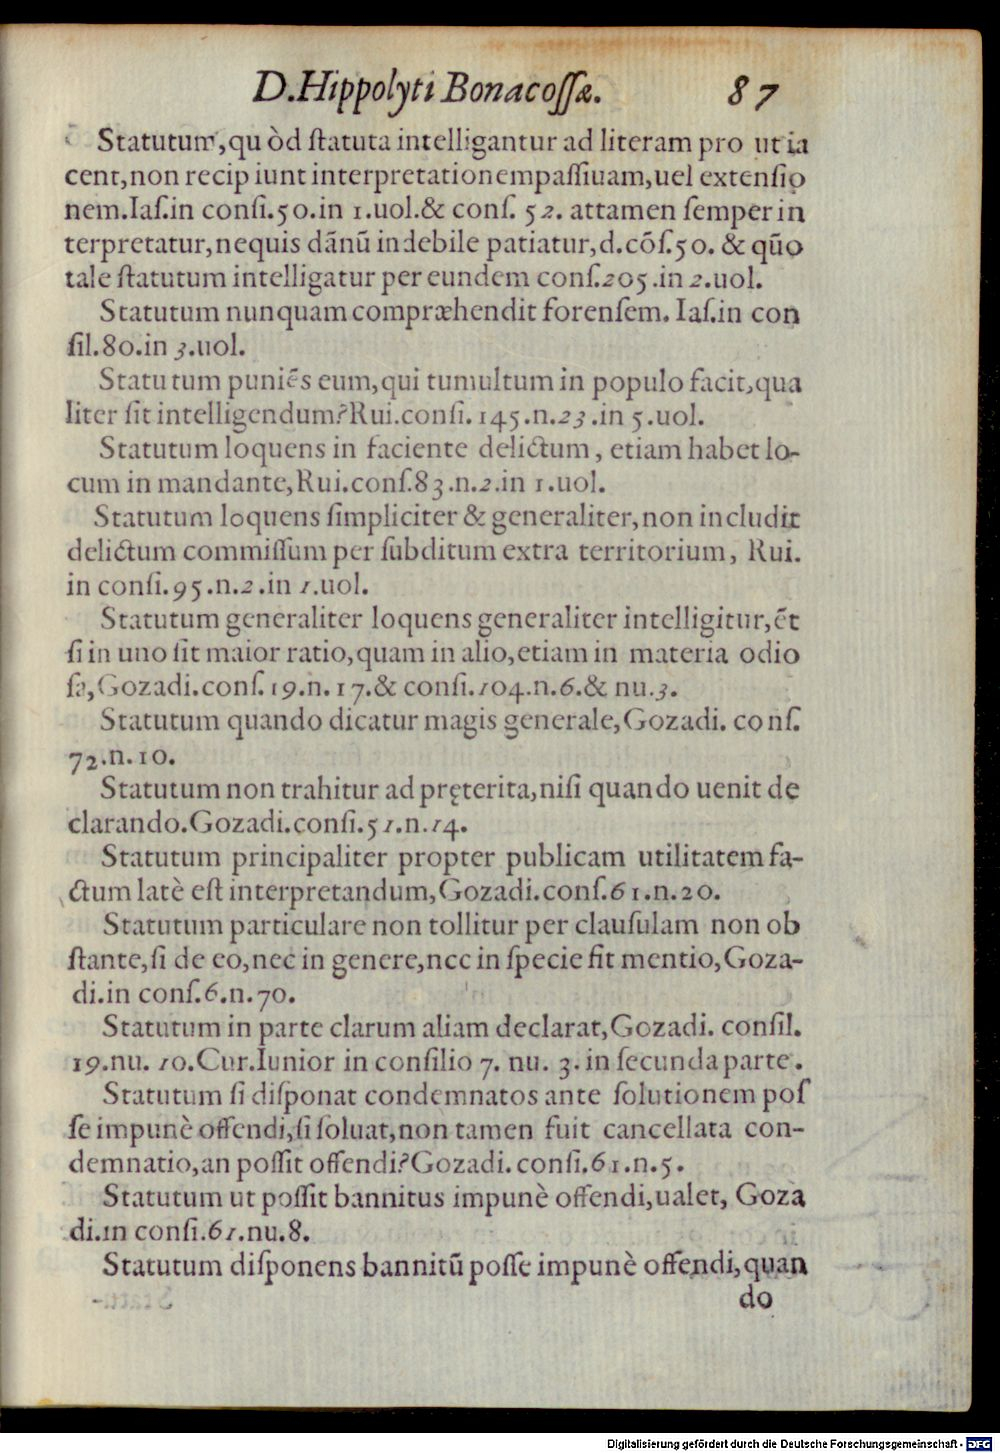 D.Hippolyti Bonacoſſæ. 87
Statutum,quòd ſtatuta intelligantur ad literam pro ut ia
cent,non recipiunt interpretationempaſſiuam,uel extenſio
nem.Iaſ.in conſi.50.in 1.uol.& conſ. 52. attamen ſemper in
terpretatur,nequis dãnũ indebile patiatur,d.cõſ.50. & qũo
tale ſtatutum intelligatur per eundem conſ.205.in 2.uol.
Statutum nunquam compræhendit forenſem. Iaſ.in con
ſil.80.in 3.uol.
Statutum puniẽs eum,qui tumultum in populo facit,qua
liter ſit intelligendum?Rui.conſi.145.n.23.in 5.uol.
Statutum loquens in faciente delictum, etiam habet lo-
cum in mandante,Rui.conſ.83.n.2.in 1.uol.
Statutum loquens ſimpliciter & generaliter,non includit
delictum commiſſum per ſubditum extra territorium, Rui.
in conſi.95.n.2.in 1.uol.
Statutum generaliter loquens generaliter intelligitur,ẽt
ſi in uno ſit maior ratio,quam in alio,etiam in materia odio
ſa,Gozadi.conſ.19.n.17.& conſi.104.n.6.& nu.3.
Statutum quando dicatur magis generale,Gozadi. conſ.
72.n.10.
Statutum non trahitur ad pręterita,niſi quando uenit de
clarando.Gozadi.conſi.51.n.14.
Statutum principaliter propter publicam utilitatem fa-
ctum latè eſt interpretandum,Gozadi.conſ.61.n.20.
Statutum particulare non tollitur per clauſulam non ob
ſtante,ſi de eo,nec in genere,nec in ſpecie fit mentio,Goza-
di.in conſ.6.n.70.
Statutum in parte clarum aliam declarat,Gozadi. conſil.
19.nu. 10.Cur.Iunior in conſilio 7. nu. 3. in ſecunda parte.
Statutum ſi diſponat condemnatos ante ſolutionem poſ
ſe impunè offendi,ſi ſoluat,non tamen fuit cancellata con-
demnatio,an poſſit offendi?Gozadi.conſi.61.n.5.
Statutum ut poſſit bannitus impunè offendi,ualet, Goza
di.in conſi.61.nu.8.
Statutum diſponens bannitũ poſſe impunè offendi,quan
do
Digitalisierung gefördert durch die Deutsche Forschungsgemeinschaft - DFG